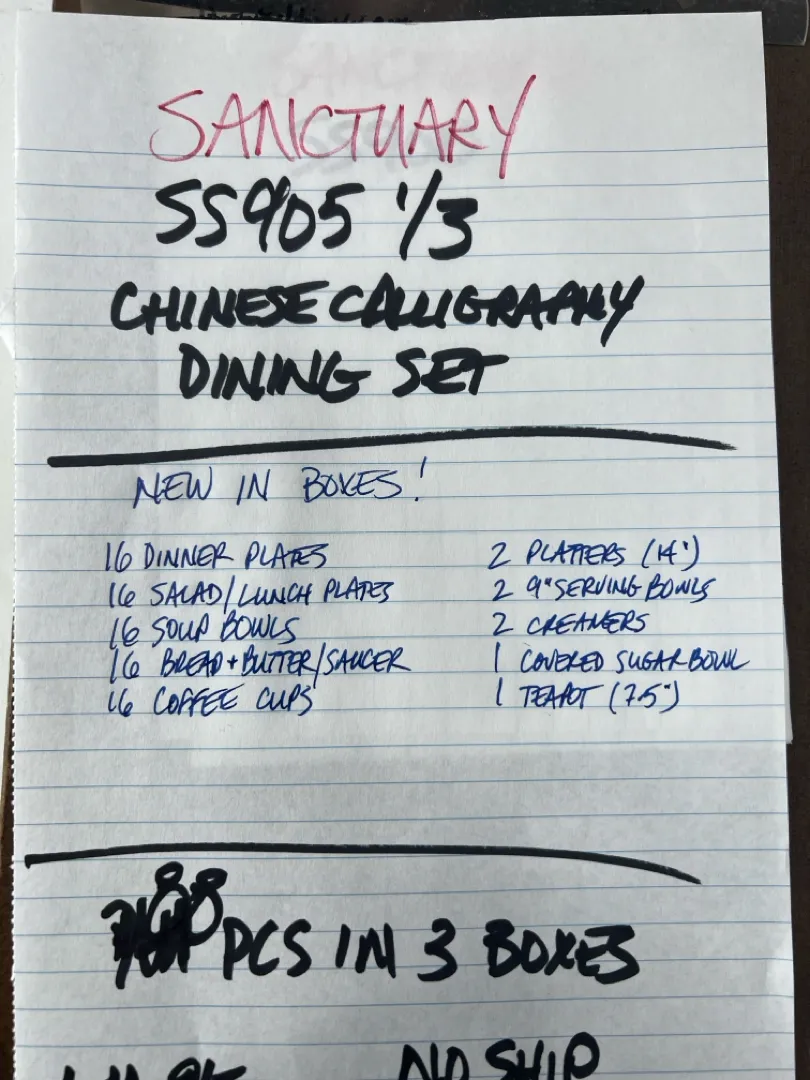 SANCTUARY
SS905 1/3
CHINESE CALLIGRAPHY
DINING SET
NEW IN BOXES!
16 DINNER PLATES
16 SALAD/LUNCH PLATES
16 SOUP BOWLS
16 BREAD+BUTTER/SAUCER
16 COFFEE CUPS
2 PLATTERS (14")
2 9" SERVING BOWLS
2 CREAMERS
1 COVERED SUGAR BOWL
1 TEAPOT (7.5")
88 PCS IN 3 BOXES
NO SHIP